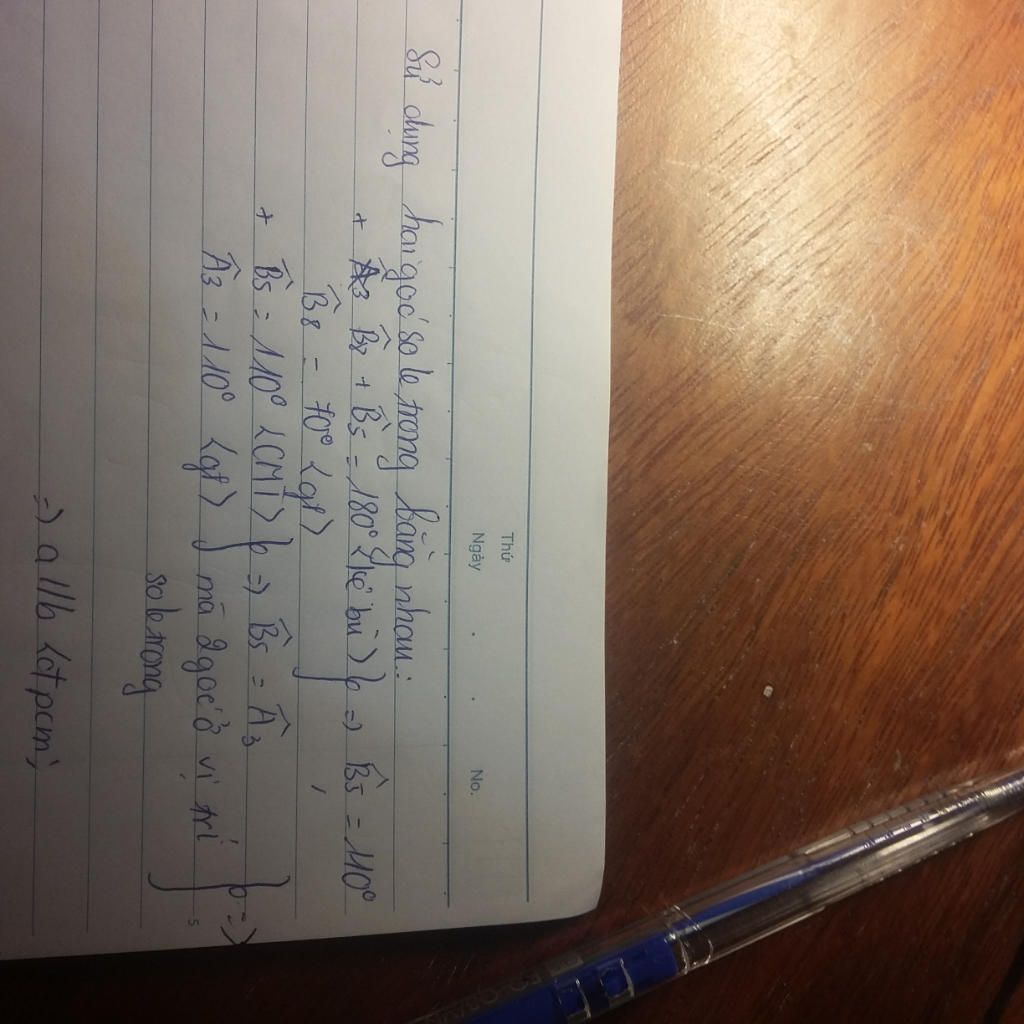 Thứ
Ngày . . No.
Sử dụng hai góc so le trong bằng nhau:
+ B̂8 + B̂5 = 180° (kề bù) } => B̂5 = 110°
B̂8 = 70° (gt)
+ B̂5 = 110° (CMT) } => B̂5 = Â3
Â3 = 110° (gt) mà 2 góc ở vị trí } =>
so le trong
=> a // b (đpcm)
5